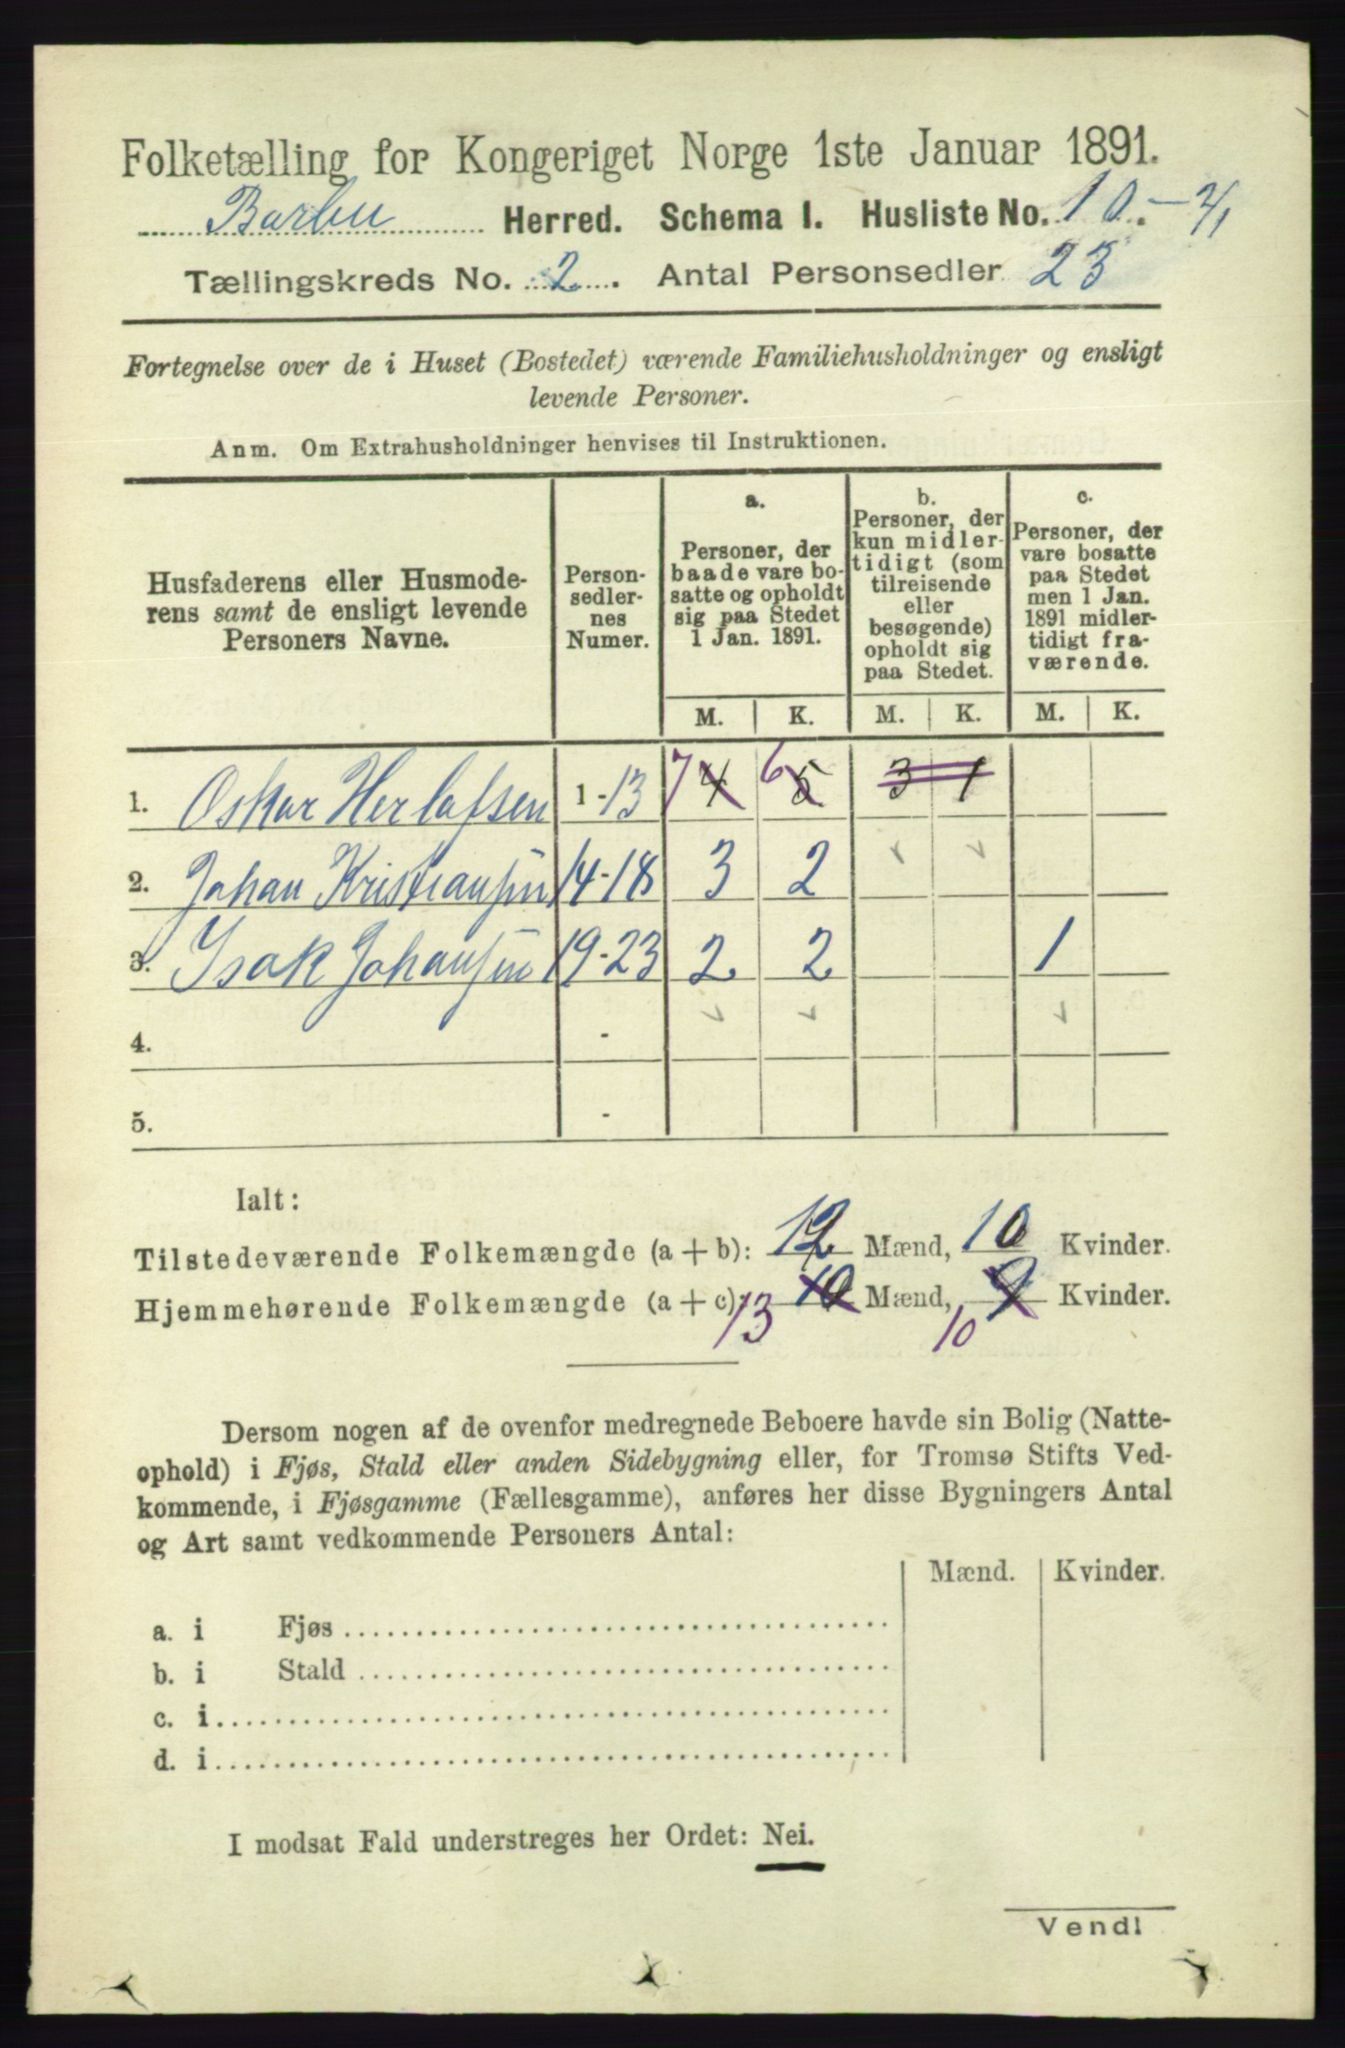 Folketælling for Kongeriget Norge 1ste Januar 1891.
Barbu Herred. Schema I. Husliste No. 10.- 2/1
Tællingskreds No. 2. Antal Personsedler 23
Fortegnelse over de i Huset (Bostedet) værende Familiehusholdninger og ensligt
levende Personer.
Anm. Om Extrahusholdninger henvises til Instruktionen.
Husfaderens eller Husmode-
rens samt de ensligt levende
Personers Navne.
Person-
sedler-
nes
Numer.
a.
Personer, der
baade vare bo-
satte og opholdt
sig paa Stedet
1 Jan. 1891.
b.
Personer, der
kun midler-
tidigt (som
tilreisende
eller
besøgende)
opholdt sig
paa Stedet.
c.
Personer, der
vare bosatte
paa Stedet
men 1 Jan.
1891 midler-
tidigt fra-
værende.
M. K. M. K. M. K.
1. Oskar Herlofsen 1-13 7 4 6 5 3 1
2. Johan Kristiansen 14-18 3 2
3. Isak Johansen 19-23 2 2 1
4. -
5. -
Ialt:
Tilstedeværende Folkemængde (a + b): 12 Mænd, 10 Kvinder.
Hjemmehørende Folkemængde (a + c) 13 10 Mænd, 10 9 Kvinder.
Dersom nogen af de ovenfor medregnede Beboere havde sin Bolig (Natte-
ophold) i Fjøs, Stald eller anden Sidebygning eller, for Tromsø Stifts Ved-
kommende, i Fjøsgamme (Fællesgamme), anføres her disse Bygningers Antal
og Art samt vedkommende Personers Antal:
Mænd. Kvinder.
a. i Fjøs
b. i Stald
c. i
d. i
I modsat Fald understreges her Ordet: Nei.
Vend!